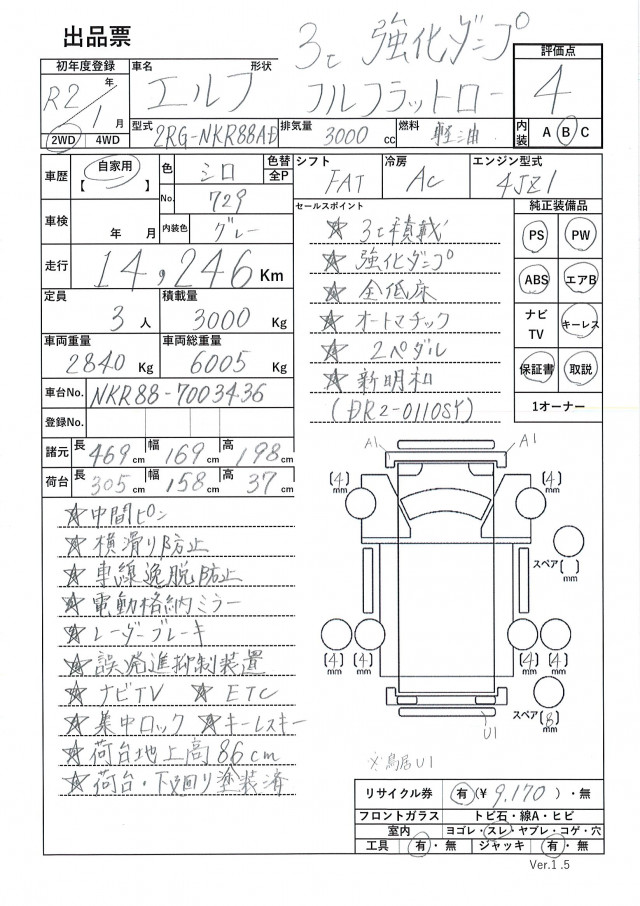 出品票
3t 強化ダンプ
フルフラットロー
評価点
4
初年度登録
R2年
1月
2WD 4WD
車名 エルフ 形状
型式 2RG-NKR88AD 排気量 3000 cc 燃料 軽油
内装 A B C
車歴 自家用
【 】
色 シロ 色替 全P
No. 729
内装色 グレー
車検 年 月
走行 14,246 Km
定員 3 人
積載量 3000 Kg
車両重量 2840 Kg
車両総重量 6005 Kg
車台No. NKR88-7003436
登録No.
諸元 長 469 cm 幅 169 cm 高 198 cm
荷台 長 305 cm 幅 158 cm 高 37 cm
シフト FAT 冷房 AC エンジン型式 4JZ1
セールスポイント
☆ 3t積載
☆ 強化ダンプ
☆ 全低床
☆ オートマチック
☆ 2ペダル
☆ 新明和
(DR2-0110SY)
純正装備品
PS PW
ABS エアB
ナビTV キーレス
保証書 取説
1オーナー
☆中間ピン
☆横滑り防止
☆車線逸脱防止
☆電動格納ミラー
☆レーダーブレーキ
☆誤発進抑制装置
☆ナビTV ☆ETC
☆集中ロック ☆キーレスキー
☆荷台地上高86cm
☆荷台・下廻り塗装済
A1 A1
(4) mm (4) mm
スペア( ) mm
(4) mm (4) mm (4) mm (4) mm
スペア(8) mm
U1
※鳥居U1
リサイクル券 有(¥ 9,170 )・無
フロントガラス トビ石・線A・ヒビ
室内 ヨゴレ・スレ・ヤブレ・コゲ・穴
工具 有・無 ジャッキ 有・無
Ver.1.5